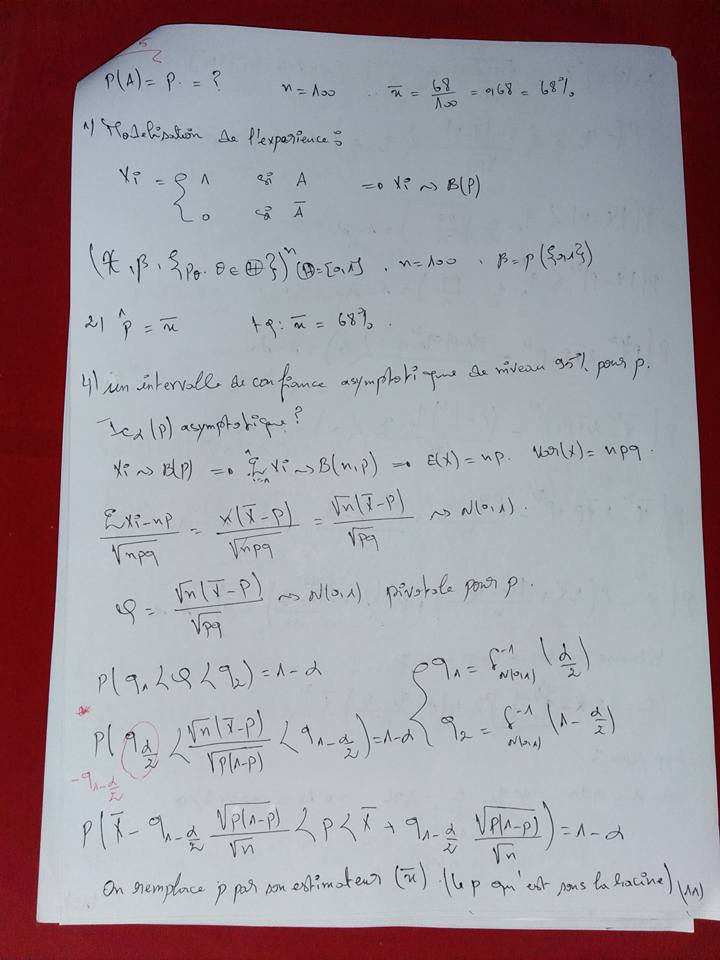 5
P(A) = P. = ? n = 100 . . x̄ = 68/100 = 0,68 = 68%
1) Modelisation de l'experience :
Xi = { 1 si A => Xi ~> B(P)
0 si Ā
(X, β, {Pθ. θ ∈ Θ})ⁿ Θ = [0,1] . n = 100 . β = P({0,1})
2) p̂ = x̄ x̄ = 68%.
4) un intervalle de confiance asymptotique de niveau 95% pour p.
Icα(P) asymptotique ?
Xi ~> B(P) => Σ Xi ~> B(n,p) => E(X) = np. Var(X) = npq.
(ΣXi - np)/√npq = n(X̄ - P)/√npq = √n(X̄ - P)/√pq ~> N(0,1).
φ = √n(X̄ - P)/√pq ~> N(0,1) pivotale pour p.
P(q1 < φ < q2) = 1 - α { q1 = f⁻¹N(0,1) (α/2)
P(qα/2 < √n(X̄ - P)/√P(1-P) < q1-α/2) = 1-α q2 = f⁻¹N(0,1) (1 - α/2)
-q1-α/2
P(X̄ - q1-α/2 √P(1-P)/√n < P < X̄ + q1-α/2 √P(1-P)/√n) = 1 - α
On remplace p par son estimateur (x̄) . (le p qu'est sous la racine) (11)